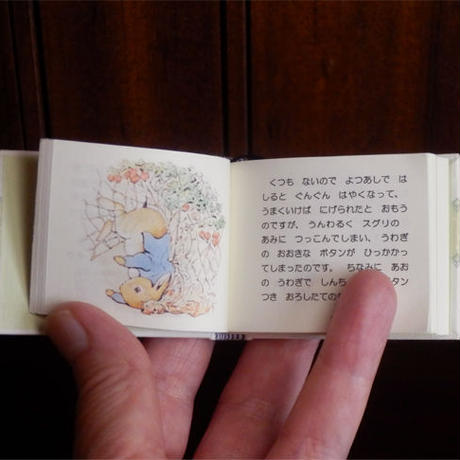 くつも　ないので　よつあしで　は
しると　ぐんぐん　はやくなって、
うまくいけば　にげられたと　おもう
のですが、うんわるく　スグリの
あみに　つっこんでしまい、うわぎ
の　おおきな　ボタンが　ひっかかっ
てしまったのです。　ちなみに　あお
の　うわぎで　しんち　タン
つき　おろしたての